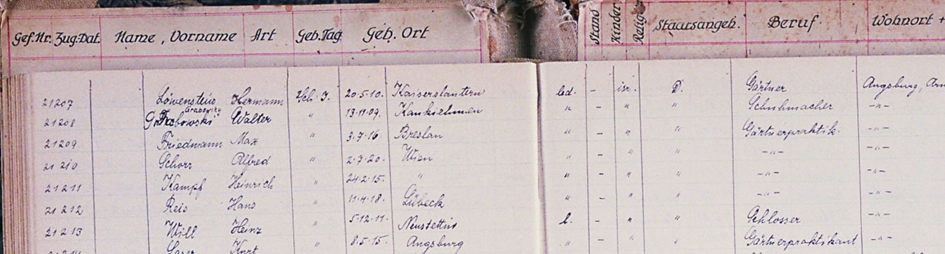 Gef.Nr. Zug.Dat. Name, Vorname Art Geb.Tag Geb. Ort Stand Kinder Relig. Staatsangeh. Beruf Wohnort +
21207 Löwenstein Hermann Sch. J. 20.5.10. Kaiserslautern led. - isr. D. Gärtner Augsburg,
21208 Walter " 13.11.09. " - " " Schuhmacher -"-
21209 Friedmann Max " 3.7.16. Breslau " - " " Gärtnerpraktik. -"-
21210 Schorr Alfred " 2.7.20. Wien " - " " -"- -"-
21211 Kampf Heinrich " 24.2.15. " " - " " -"- -"-
21212 Reis Hans " 11.4.18. Lübeck " - " " -"- -"-
21213 Will Heinz " 5.12.11. Neustettin l. - " " Schlosser -"-
Kurt " 8.5.15. Augsburg " - " " Gärtnerpraktikant -"-